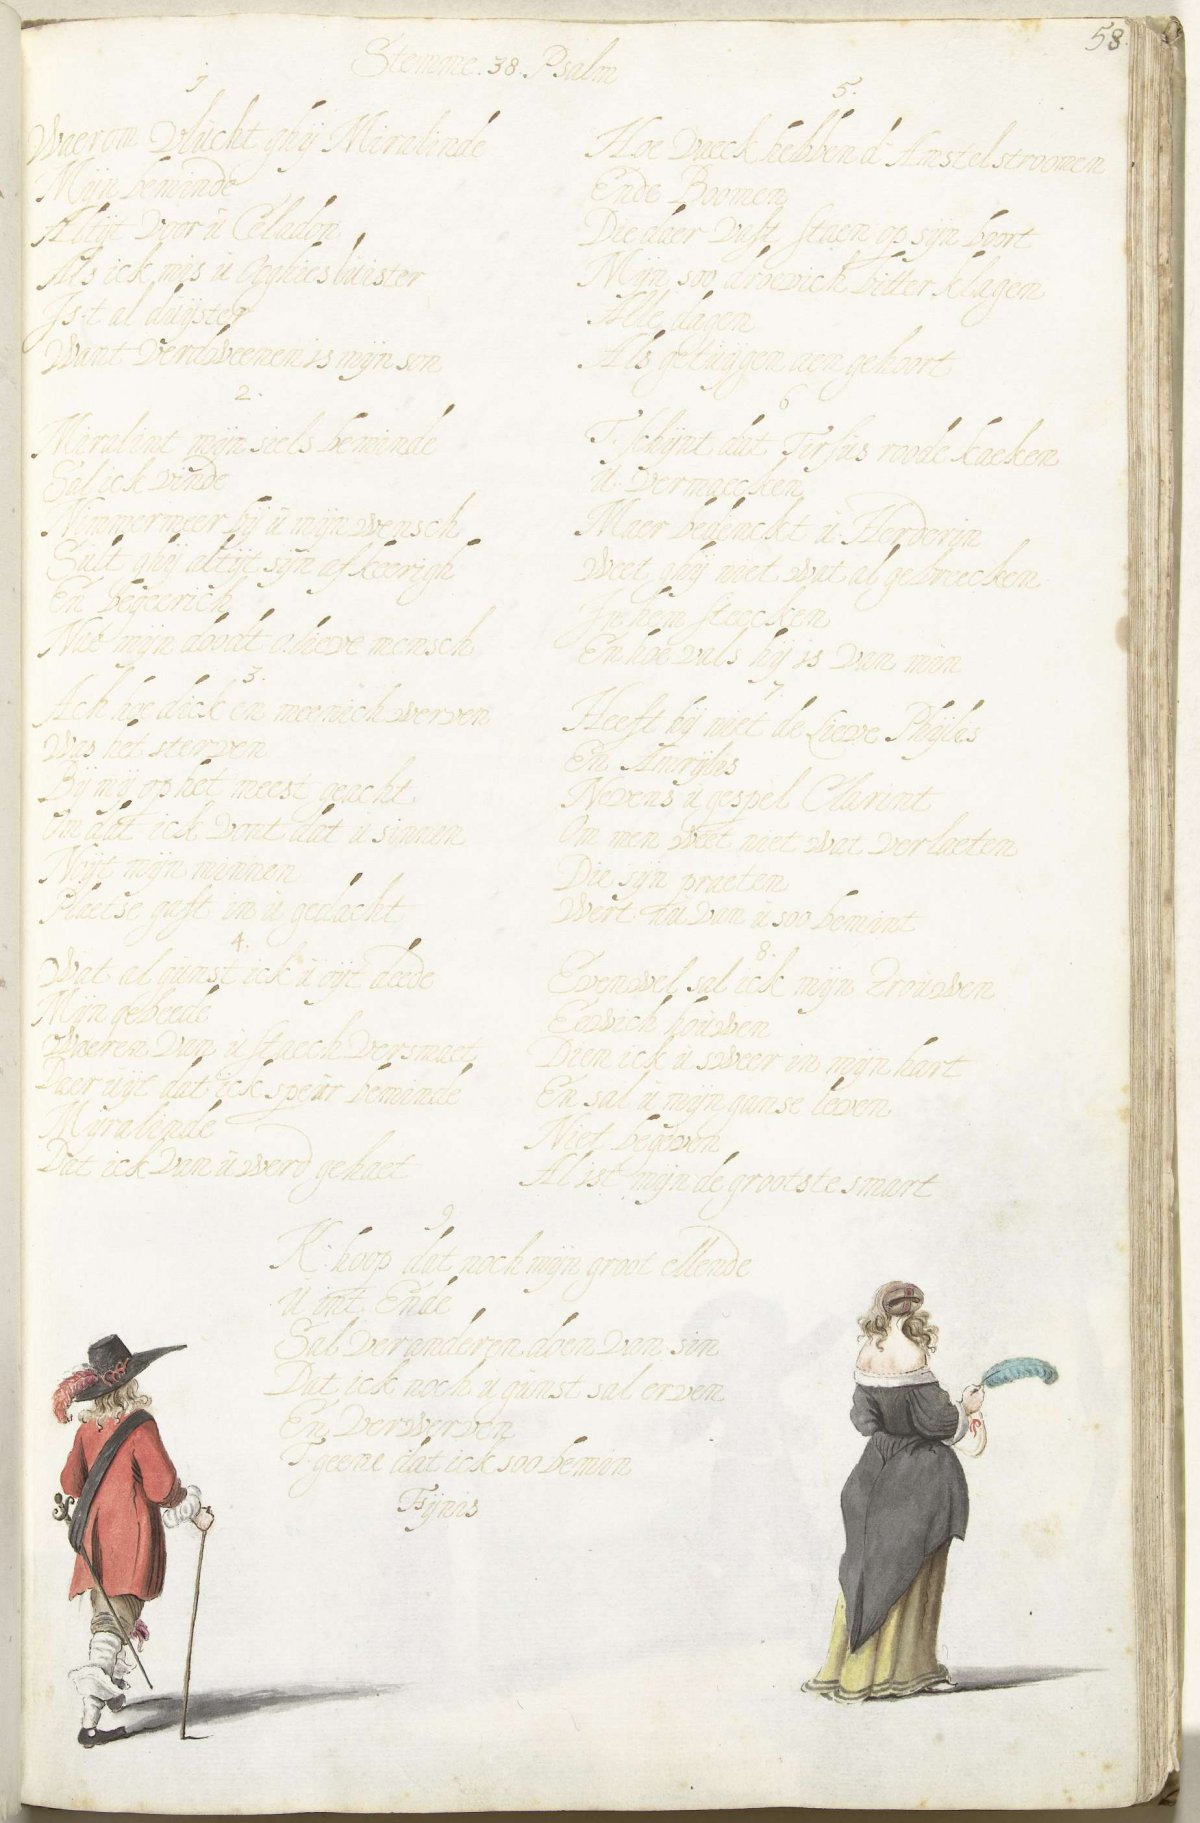 58.
Stemme. 38. Psalm
1
Waerom Vlucht ghij Miralinde
Mijn beminde
Altijt Voor ù Celadon
Als ick mis ù Ooghies lùister
Js.t al dùijster
Want Verdweenen is mijn son
2.
Miralint mijn siels beminde
Sal ick vinde
Nimmermeer bij ù mijn wensch
Sult ghij altijt sijn afkeerigh
En begeerich
Nae mijn doodt o lieve mensch
3.
Ach hoe dick en meenich werven
Was het sterven
Bij mij op het meest geacht
Om dat ick Vont dat ù sinnen
Noijt mijn minnen
Plaetse gaft in ù gedacht
4.
Wat al gùnst ick ù oijt deede
Mijn gebeede
Waeren Van ù staech Versmaet
Daer ùijt dat ick speùr beminde
Mijralinde
Dat ick Van ù werd gehaet
5.
Hoe Vaeck hebben d' Amstelstroomen
Ende Boomen
Die daer Vast staen op sijn boort
Mijn soo droevich bitter klagen
Alle dagen
Als getùijgen aen gehoort
6
T. schijnt dat Tirsus roode kaeken
ù. Vermaecken
Maer bedenckt ù. Herderin
Weet ghij niet wat al gebreecken
Jn hem steecken
En hoe Vals hij is Van min
7.
Heeft hij niet de Lieve Phijlis
En Amrijlis
Nevens ù gespel Clarint
Om men weet niet wat verlaeten
Die sijn praeten
Wert nù Van ù soo bemint
8.
Evenwel sal ick mijn Trouwen
Eewich hoùwen
Dien ick ù sweer in mijn hart
En sal ù mijn ganse leven
Niet begeven
Al ist mijn de grootste smart
9
K. hoop dat noch mijn groot ellende
ù int Ende
Sal veranderen doen Van sin
Dat ick noch ù gùnst sal erven
En Verwerven
T. geene dat ick soo bemin
Fijnis